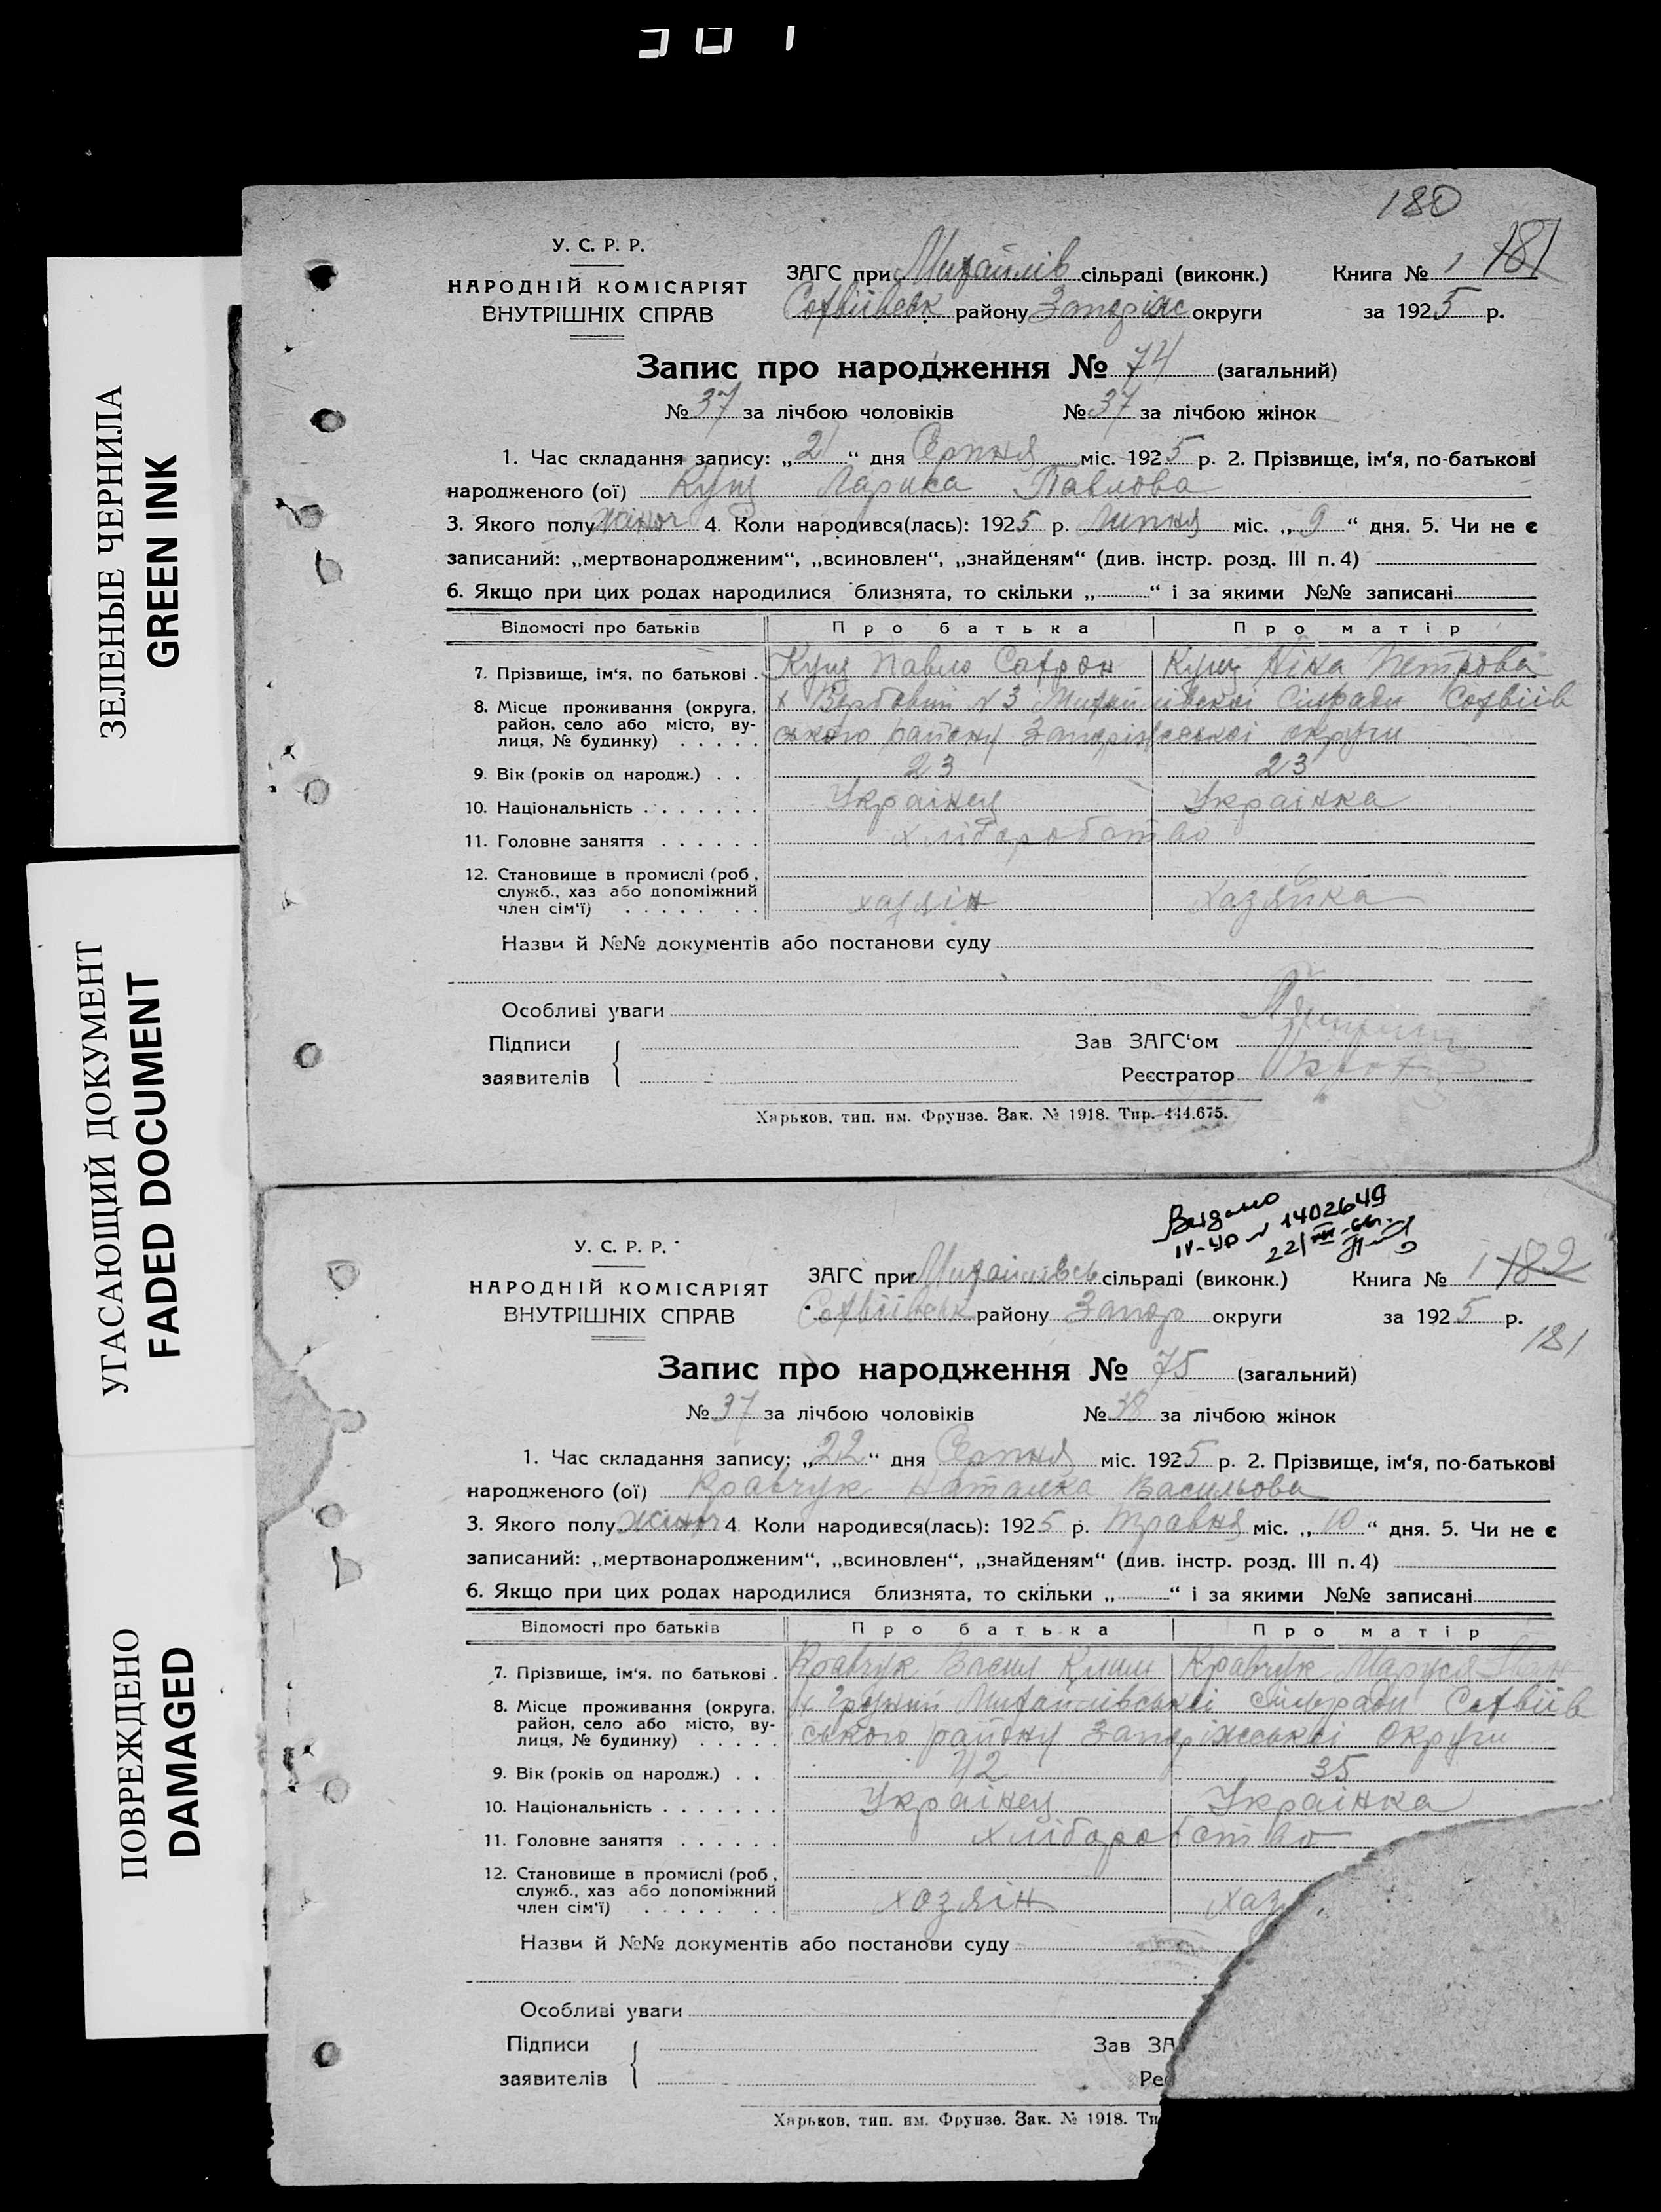 ЗЕЛЕНЫЕ ЧЕРНИЛА
GREEN INK
УГАСАЮЩИЙ ДОКУМЕНТ
FADED DOCUMENT
ПОВРЕЖДЕНО
DAMAGED
180
У. С. Р. Р.
НАРОДНІЙ КОМІСАРІЯТ
ВНУТРІШНІХ СПРАВ
ЗАГС при Михайлів сільраді (виконк.) Книга № 1 181
Софіївськ району Запоріжс округи за 1925 р.
Запис про народження № 74 (загальний)
№ 37 за лічбою чоловіків № 37 за лічбою жінок
1. Час складання запису: „21“ дня Серпня міс. 1925 р. 2. Прізвище, ім‘я, по-батькові
народженого (ої) Кущ Лариса Павлова
3. Якого полу жіноч 4. Коли народився(лась): 1925 р. Липня міс. „9“ дня. 5. Чи не є
записаний: „мертвонародженим“, „всиновлен“, „знайденям“ (див. інстр. розд. III п. 4)
6. Якщо при цих родах народилися близнята, то скільки „ “ і за якими №№ записані
Відомості про батьків Про батька Про матір
7. Прізвище, ім‘я, по батькові . Кущ Павло Софрон Кущ Ніна Петрова
8. Місце проживання (округа, х Вербовий N 3 Михайлівської Сільради Софіїв
район, село або місто, ву-
лиця, № будинку) . . . . . ського району Запоріжської округи
9. Вік (років од народж.) . . 23 23
10. Національність . . . . . . . Українец Українка
11. Головне заняття . . . . . . хліборобство
12. Становище в промислі (роб.,
служб., хаз або допоміжний
член сім‘ї) . . . . . . . хазяїн Хазяйка
Назви й №№ документів або постанови суду
Особливі уваги
Підписи Зав ЗАГС‘ом
заявителів Реєстратор
Харьков, тип. им. Фрунзе. Зак. № 1918. Тир. 444.675.
Видано
IV-УР N 1402649
22/III-66.
У. С. Р. Р.
НАРОДНІЙ КОМІСАРІЯТ
ВНУТРІШНІХ СПРАВ
ЗАГС при Михайлівсь сільраді (виконк.) Книга № 1 182
Софіївськ району Запор округи за 1925 р.
181
Запис про народження № 75 (загальний)
№ 37 за лічбою чоловіків № 38 за лічбою жінок
1. Час складання запису: „22“ дня Серпня міс. 1925 р. 2. Прізвище, ім‘я, по-батькові
народженого (ої) Кравчук Наталка Васильова
3. Якого полу жіноч 4. Коли народився(лась): 1925 р. травня міс. „10“ дня. 5. Чи не є
записаний: „мертвонародженим“, „всиновлен“, „знайденям“ (див. інстр. розд. III п. 4)
6. Якщо при цих родах народилися близнята, то скільки „ “ і за якими №№ записані
Відомості про батьків Про батька Про матір
7. Прізвище, ім‘я, по батькові . Кравчук Васил Клим Кравчук Маруся Іван
8. Місце проживання (округа, х Грузький Михайлівської сільради Софіїв
район, село або місто, ву-
лиця, № будинку) . . . . . ського району Запоріжської округи
9. Вік (років од народж.) . . 42 35
10. Національність . . . . . . . Українец Українка
11. Головне заняття . . . . . . хліборобство
12. Становище в промислі (роб.,
служб., хаз або допоміжний
член сім‘ї) . . . . . . . хозяїн хаз
Назви й №№ документів або постанови суду
Особливі уваги
Підписи Зав ЗА
заявителів Ре
Харьков, тип. им. Фрунзе. Зак. № 1918. Ти